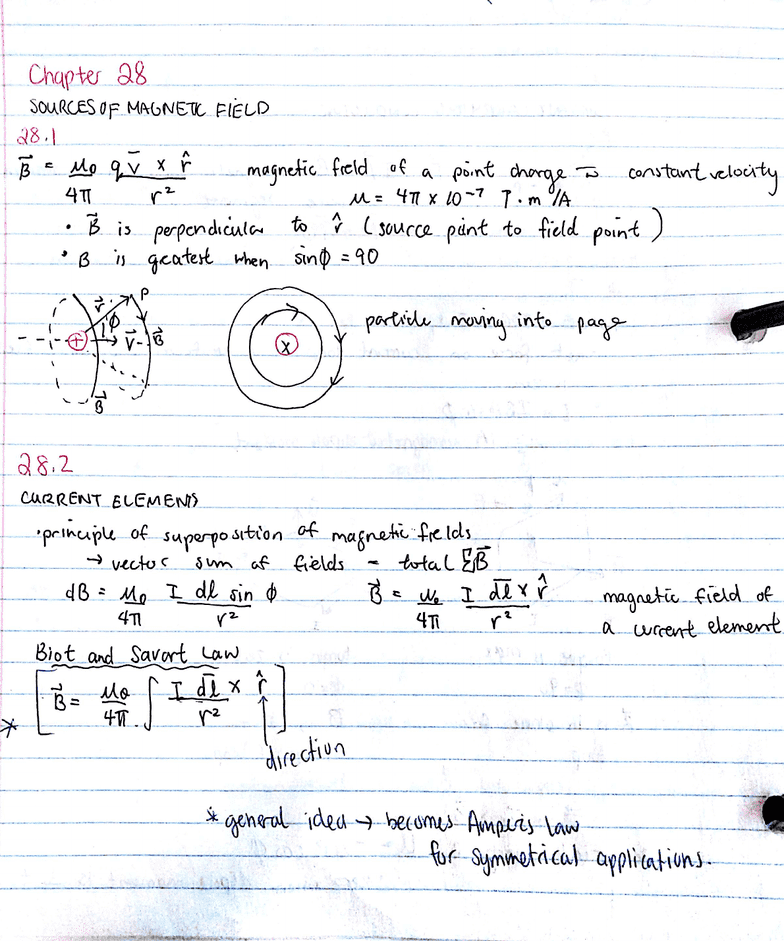 Chapter 28
SOURCES OF MAGNETIC FIELD
28.1
B⃗ = μ₀/4π q v̄ × r̂ / r² magnetic field of a point charge w̄ constant velocity
μ = 4π × 10⁻⁷ T·m/A
• B⃗ is perpendicular to r̂ (source point to field point)
• B is geatest when sinϕ = 90
r⃗ P ϕ + v⃗ B⃗ B⃗
x particle moving into page
28.2
CURRENT ELEMENTS
• principle of superposition of magnetic fields
→ vector sum of fields = total ΣB⃗
dB = μ₀/4π I dl sin ϕ / r² B⃗ = μ₀/4π I dl̄ × r̂ / r² magnetic field of
a current element
Biot and Savart Law
* [ B⃗ = μ₀/4π ∫ I dl̄ × r̂ / r² ]
direction
* general idea → becomes Amperis Law
for symmetrical applications.